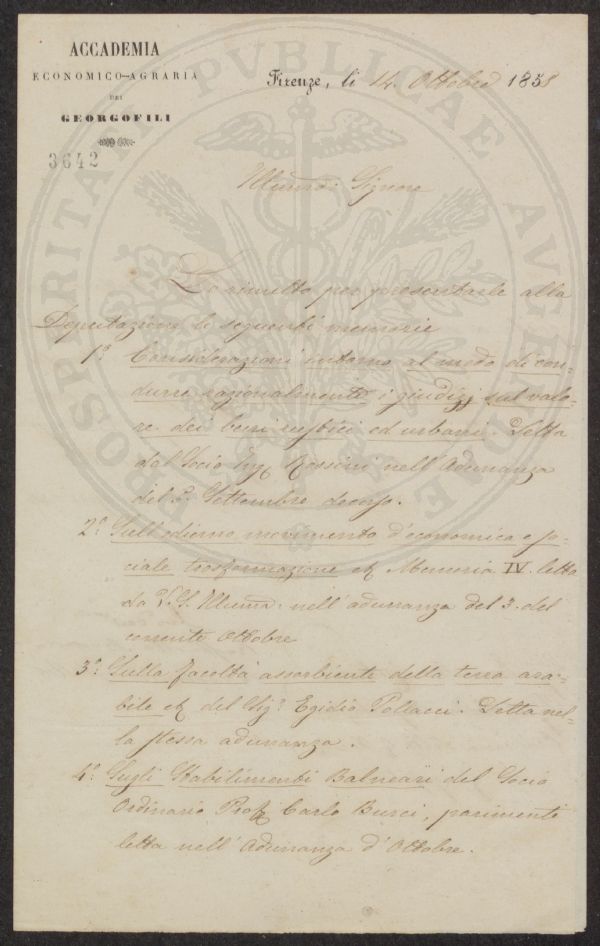 ACCADEMIA
ECONOMICO-AGRARIA
DEI
GEORGOFILI
3642
Firenze, li 14. Ottobre 1858
PROSPERITATI PVBLICAE AVGENDAE
Illmo: Signore
Le rimetto per presentarle alla
Deputazione le seguenti memorie
1ª. Considerazioni intorno al modo di con-
durre razionalmente i giudizj sul valo-
re dei beni rustici ed urbani. Letta
dal Socio Ing. Rossini nell'Adunanza
del 5. Settembre decorso.
2ª. Sull'odierno movimento d'economica e so-
ciale trasformazione ec. Memoria IV. letta
da V. S. Illma: nell'adunanza del 3. del
corrente Ottobre
3ª. Sulla facoltà assorbente della terra ara-
bile ec. del Sig: Egidio Pollacci. Letta nel-
la stessa adunanza.
4ª. Sugli Stabilimenti Balnearii del Socio
Ordinario Prof. Carlo Burci, parimente
letta nell'Adunanza d'Ottobre.